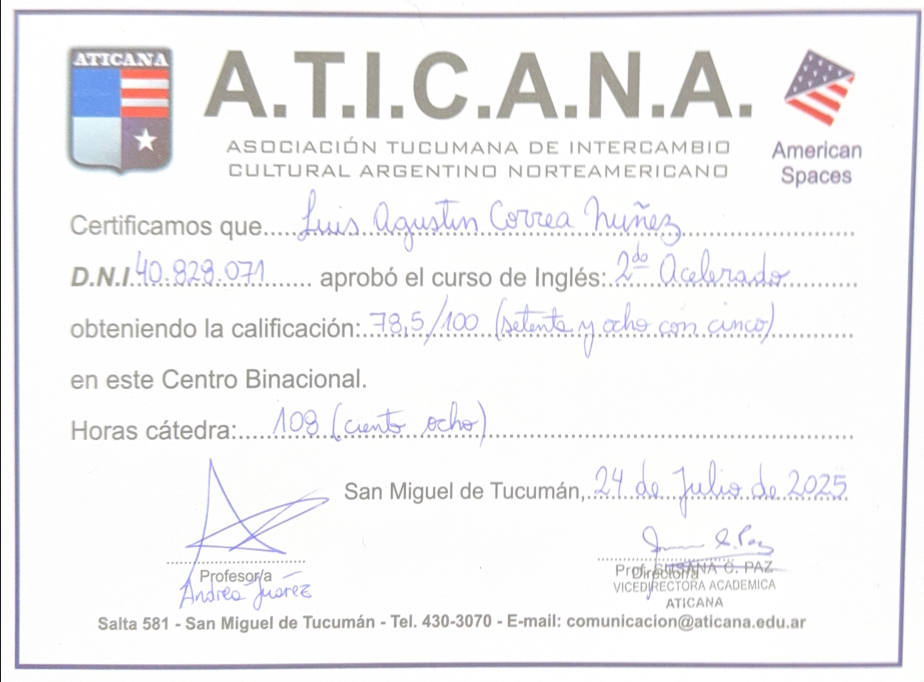 ATICANA
A.T.I.C.A.N.A.
ASOCIACIÓN TUCUMANA DE INTERCAMBIO
CULTURAL ARGENTINO NORTEAMERICANO
American
Spaces
Certificamos que....Luis Agustin Correa Nuñez
D.N.I.40.828.071 aprobó el curso de Inglés: 2do Acelerado
obteniendo la calificación: 78,5/100 (setenta y ocho con cinco)
en este Centro Binacional.
Horas cátedra: 108 (ciento ocho)
San Miguel de Tucumán, 24 de Julio de 2025
Profesor/a
Andrea Juárez
Director/a
Prof. SUSANA C. PAZ
VICEDIRECTORA ACADEMICA
ATICANA
Salta 581 - San Miguel de Tucumán - Tel. 430-3070 - E-mail: comunicacion@aticana.edu.ar